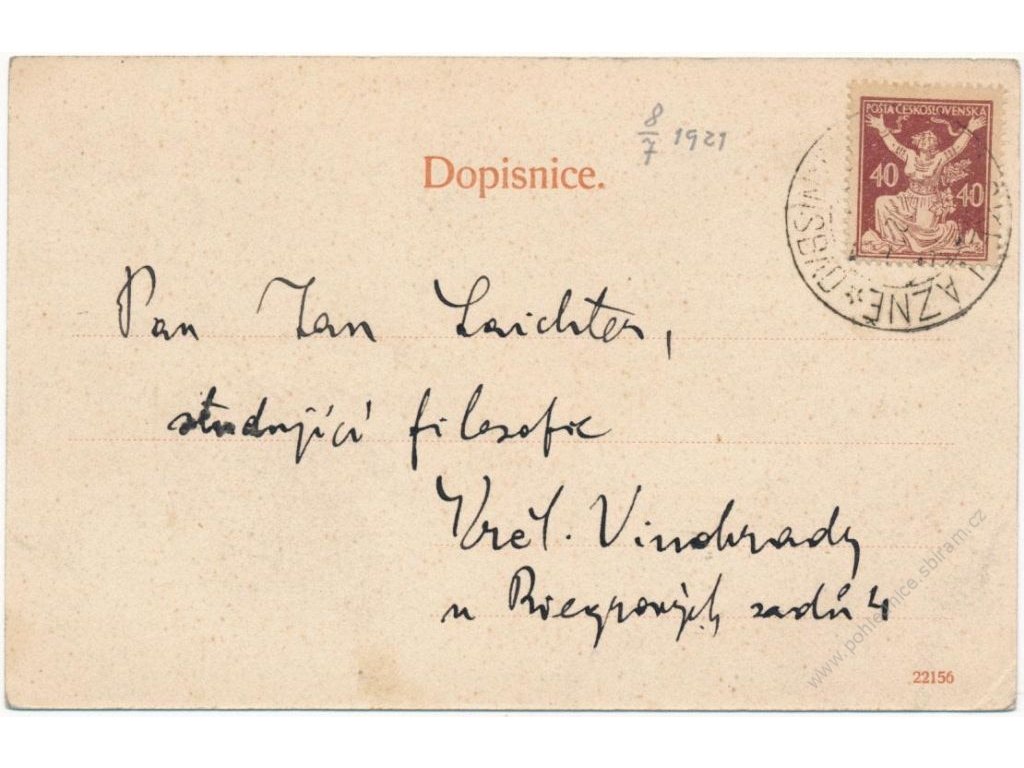 8/7 1921
Dopisnice.
POŠTA ČESKOSLOVENSKÁ
40 40
LÁZNĚ
Pan Jan Laichter,
studující filosofie
Král. Vinohrady
u Riegrových sadů 4
22156
www.pohlednice.sbiram.cz